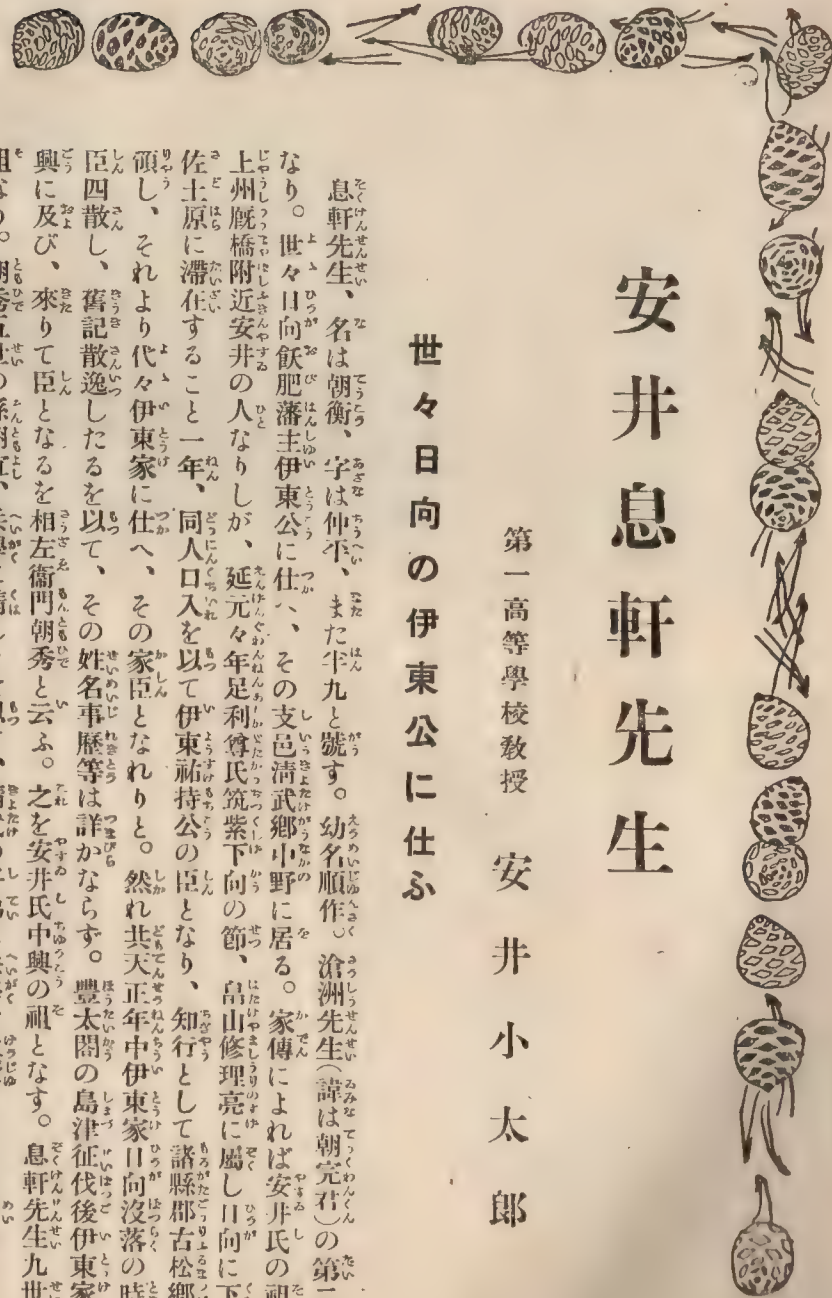 安井息軒先生
第一高等學校教授 安井小太郎
世々日向の伊東公に仕ふ
息軒先生、名は朝衡、字は仲平、また半九と號す。幼名順作。滄洲先生(諱は朝完君)の第二
なり。世々日向飫肥藩主伊東公に仕へ、その支邑淸武鄕中野に居る。家傳によれば安井氏の祖
上州厩橋附近安井の人なりしが、延元々年足利尊氏筑紫下向の節、畠山修理亮に屬し日向に下
佐土原に滯在すること一年、同人口入を以て伊東祐持公の臣となり、知行として諸縣郡古松鄕
領し、それより代々伊東家に仕へ、その家臣となれりと。然れ共天正年中伊東家日向沒落の時
臣四散し、舊記散逸したるを以て、その姓名事歷等は詳かならず。豐太閤の島津征伐後伊東家
興に及び、來りて臣となるを相左衞門朝秀と云ふ。之を安井氏中興の祖となす。息軒先生九世
祖なり。朝秀